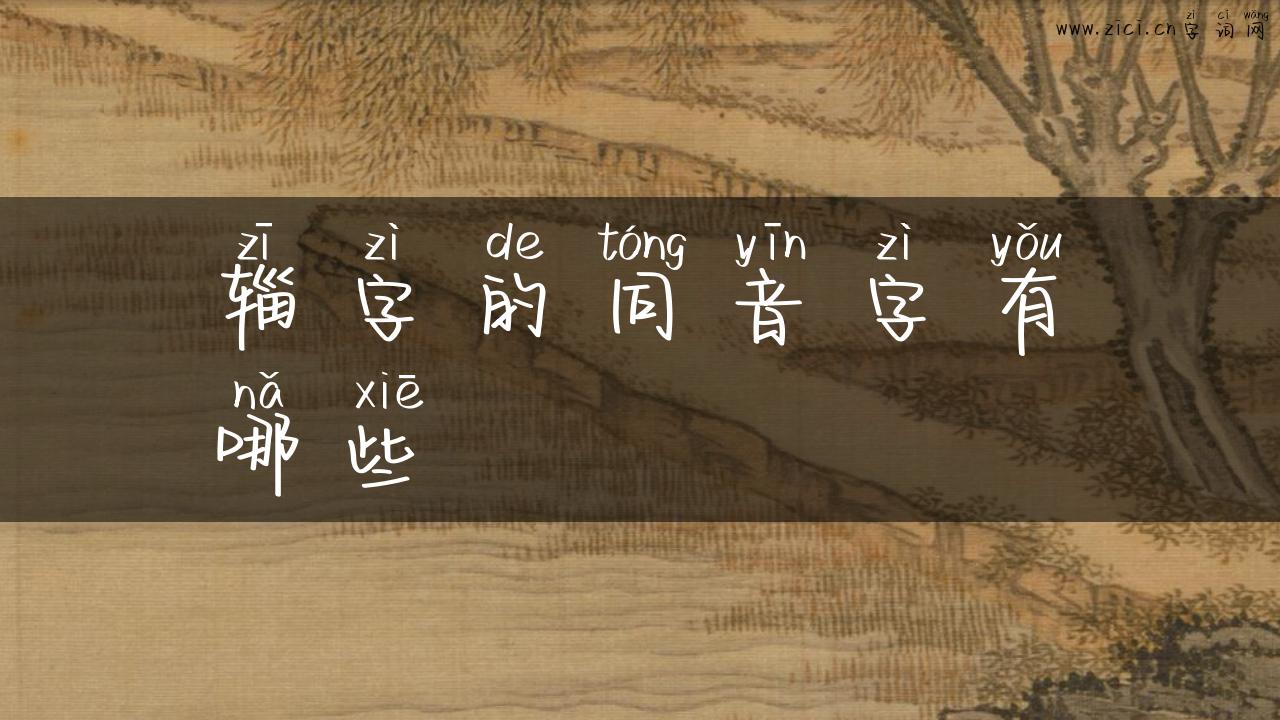 zì cí wǎng
www.zici.cn字词网
zī zì de tóng yīn zì yǒu
辎字的同音字有
nǎ xiē
哪些